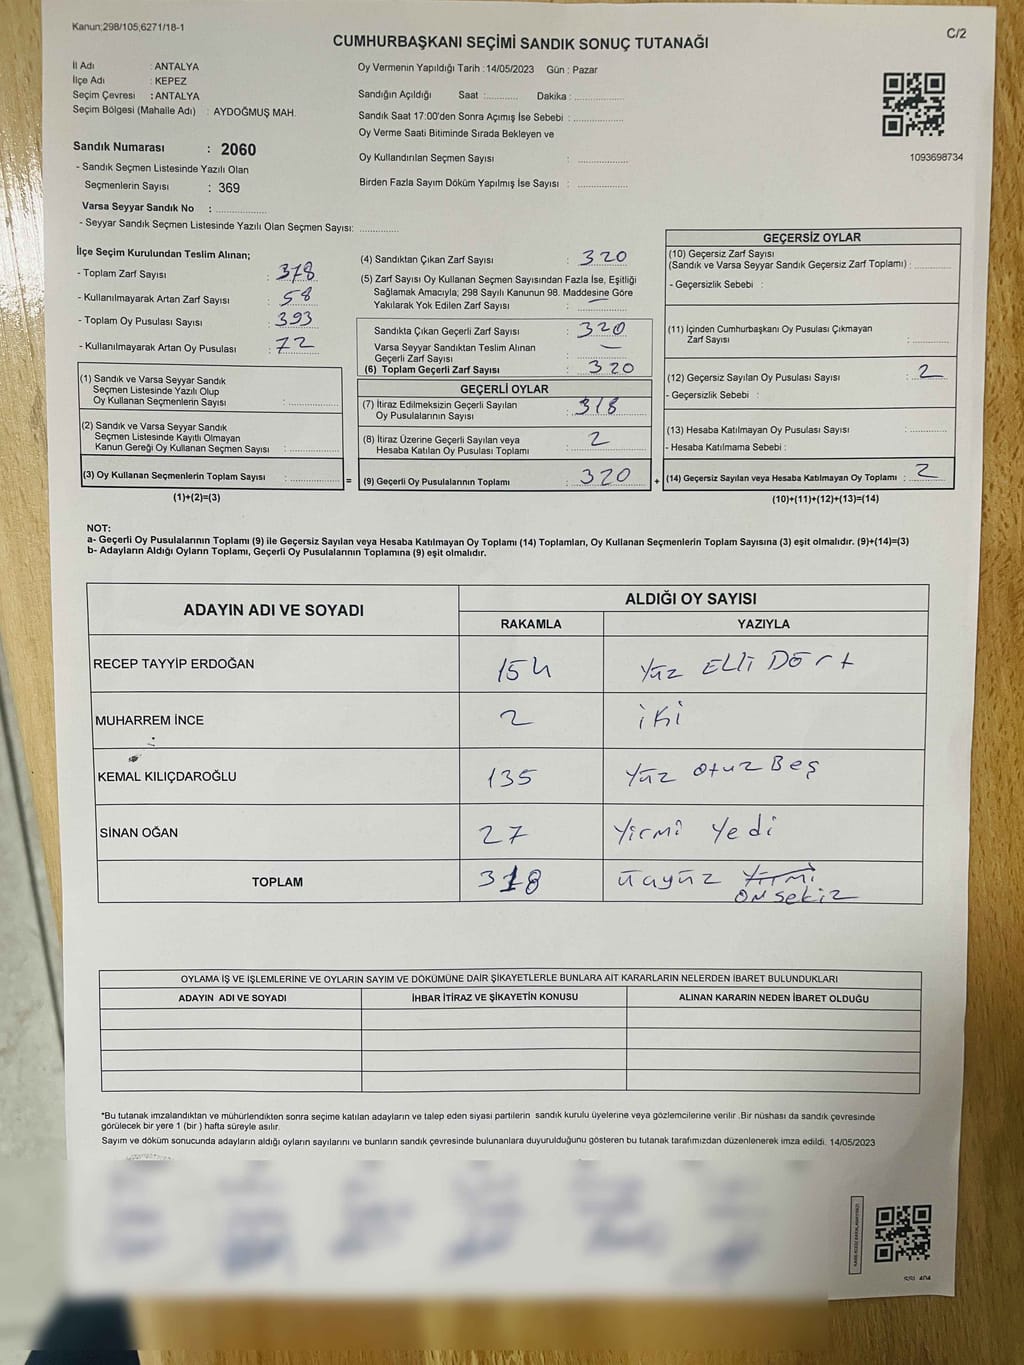 Kanun;298/105,6271/18-1
C/2
CUMHURBAŞKANI SEÇİMİ SANDIK SONUÇ TUTANAĞI
İl Adı : ANTALYA
İlçe Adı : KEPEZ
Seçim Çevresi : ANTALYA
Seçim Bölgesi (Mahalle Adı) : AYDOĞMUŞ MAH.
Sandık Numarası : 2060
- Sandık Seçmen Listesinde Yazılı Olan
Seçmenlerin Sayısı : 369
Varsa Seyyar Sandık No : ................
- Seyyar Sandık Seçmen Listesinde Yazılı Olan Seçmen Sayısı: ............
Oy Vermenin Yapıldığı Tarih :14/05/2023 Gün : Pazar
Sandığın Açıldığı Saat :........... Dakika : ................
Sandık Saat 17:00'den Sonra Açımış İse Sebebi : ................
Oy Verme Saati Bitiminde Sırada Bekleyen ve
Oy Kullandırılan Seçmen Sayısı : ................
Birden Fazla Sayım Döküm Yapılmış İse Sayısı : ................
1093698734
İlçe Seçim Kurulundan Teslim Alınan;
- Toplam Zarf Sayısı : 378
- Kullanılmayarak Artan Zarf Sayısı : 58
- Toplam Oy Pusulası Sayısı : 393
- Kullanılmayarak Artan Oy Pusulası : 72
(1) Sandık ve Varsa Seyyar Sandık
Seçmen Listesinde Yazılı Olup
Oy Kullanan Seçmenlerin Sayısı : ................
(2) Sandık ve Varsa Seyyar Sandık
Seçmen Listesinde Kayıtlı Olmayan
Kanun Gereği Oy Kullanan Seçmen Sayısı : ................
(3) Oy Kullanan Seçmenlerin Toplam Sayısı : ................ =
(1)+(2)=(3)
(4) Sandıktan Çıkan Zarf Sayısı : 320
(5) Zarf Sayısı Oy Kullanan Seçmen Sayısından Fazla İse, Eşitliği
Sağlamak Amacıyla; 298 Sayılı Kanunun 98. Maddesine Göre
Yakılarak Yok Edilen Zarf Sayısı : ................
Sandıkta Çıkan Geçerli Zarf Sayısı : 320
Varsa Seyyar Sandıktan Teslim Alınan
Geçerli Zarf Sayısı : —
(6) Toplam Geçerli Zarf Sayısı : 320
GEÇERLİ OYLAR
(7) İtiraz Edilmeksizin Geçerli Sayılan
Oy Pusulalarının Sayısı : 318
(8) İtiraz Üzerine Geçerli Sayılan veya
Hesaba Katılan Oy Pusulası Toplamı : 2
(9) Geçerli Oy Pusulalarının Toplamı : 320 +
GEÇERSİZ OYLAR
(10) Geçersiz Zarf Sayısı
(Sandık ve Varsa Seyyar Sandık Geçersiz Zarf Toplamı) : ............
- Geçersizlik Sebebi :
(11) İçinden Cumhurbaşkanı Oy Pusulası Çıkmayan
Zarf Sayısı : ............
(12) Geçersiz Sayılan Oy Pusulası Sayısı : 2
- Geçersizlik Sebebi :
(13) Hesaba Katılmayan Oy Pusulası Sayısı : ............
- Hesaba Katılmama Sebebi :
(14) Geçersiz Sayılan veya Hesaba Katılmayan Oy Toplamı : 2
(10)+(11)+(12)+(13)=(14)
NOT:
a- Geçerli Oy Pusulalarının Toplamı (9) ile Geçersiz Sayılan veya Hesaba Katılmayan Oy Toplamı (14) Toplamları, Oy Kullanan Seçmenlerin Toplam Sayısına (3) eşit olmalıdır. (9)+(14)=(3)
b- Adayların Aldığı Oyların Toplamı, Geçerli Oy Pusulalarının Toplamına (9) eşit olmalıdır.
ADAYIN ADI VE SOYADI ALDIĞI OY SAYISI
RAKAMLA YAZIYLA
RECEP TAYYİP ERDOĞAN 154 Yüz Elli Dört
MUHARREM İNCE 2 iki
KEMAL KILIÇDAROĞLU 135 Yüz Otuz Beş
SİNAN OĞAN 27 Yirmi Yedi
TOPLAM 318 üçyüz Yirmi
on sekiz
OYLAMA İŞ VE İŞLEMLERİNE VE OYLARIN SAYIM VE DÖKÜMÜNE DAİR ŞİKAYETLERLE BUNLARA AİT KARARLARIN NELERDEN İBARET BULUNDUKLARI
ADAYIN ADI VE SOYADI İHBAR İTİRAZ VE ŞİKAYETİN KONUSU ALINAN KARARIN NEDEN İBARET OLDUĞU
*Bu tutanak imzalandıktan ve mühürlendikten sonra seçime katılan adayların ve talep eden siyasi partilerin sandık kurulu üyelerine veya gözlemcilerine verilir .Bir nüshası da sandık çevresinde
görülecek bir yere 1 (bir ) hafta süreyle asılır.
Sayım ve döküm sonucunda adayların aldığı oyların sayılarını ve bunların sandık çevresinde bulunanlara duyurulduğunu gösteren bu tutanak tarafımızdan düzenlenerek imza edildi. 14/05/2023